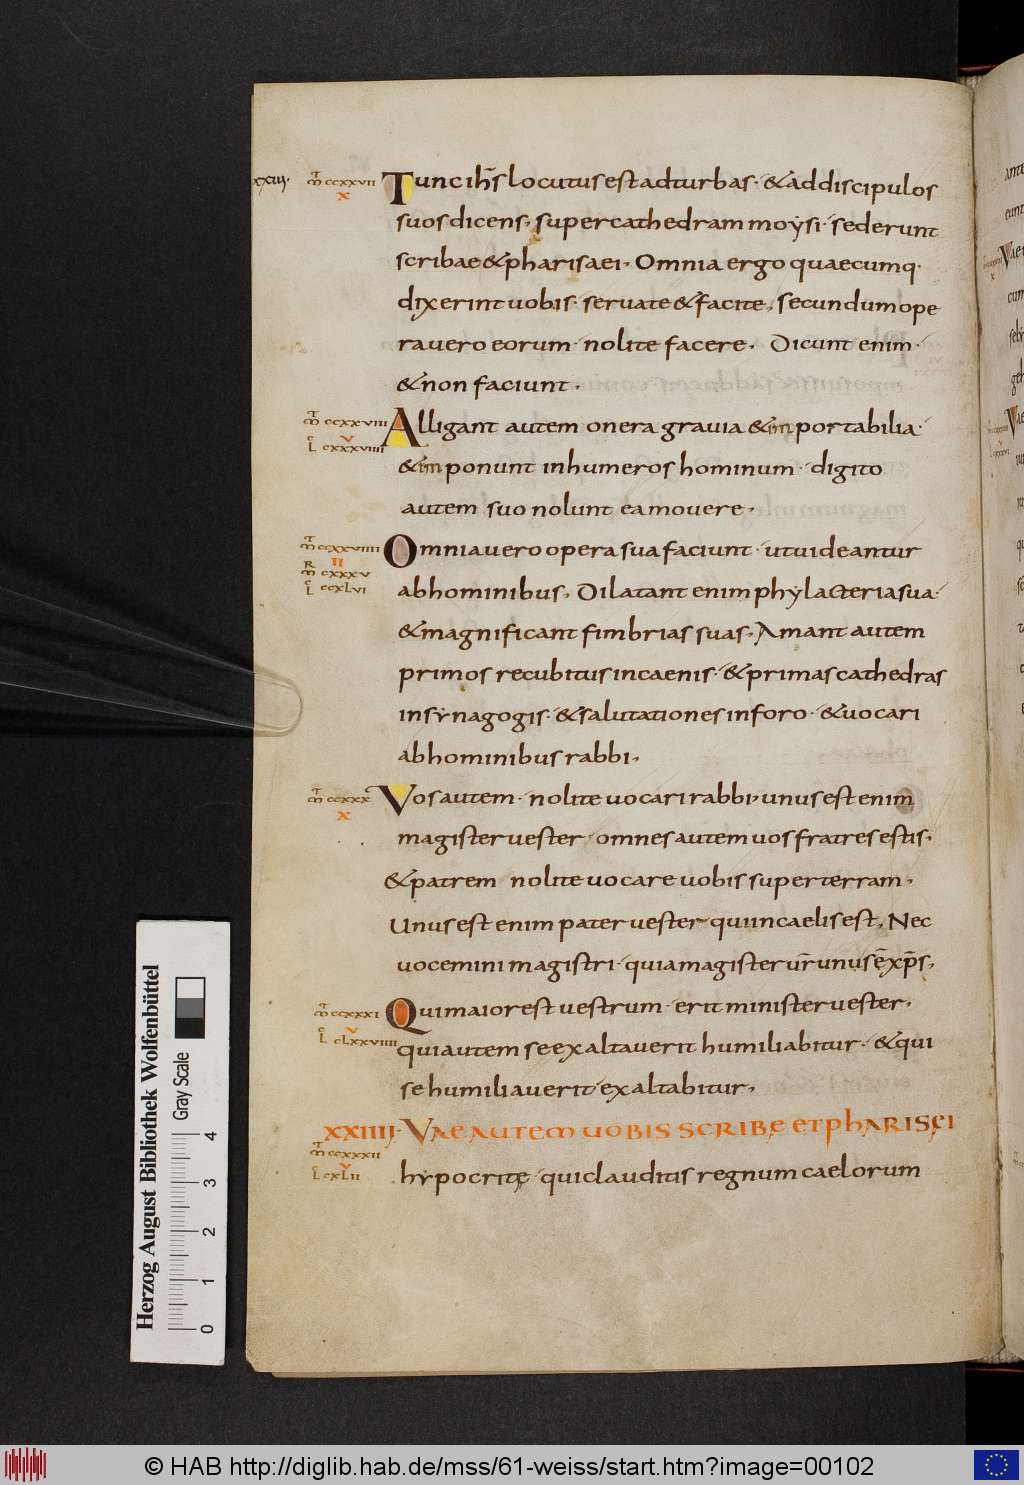 xxiii. mt ccxxvii Tunc ih̅s locutus est ad turbas· & ad discipulos
x
suos dicens, super cathedram moysi· sederunt
scribae & pharisaei, Omnia ergo quaecumq·
dixerint uobis· seruate & facite, secundum ope
ra uero eorum· nolite facere, Dicunt enim·
& non faciunt,
mt ccxxviii Alligant autem onera grauia & inportabilia·
v
l cxxxviiii
& inponunt in humeros hominum· digito
autem suo nolunt ea mouere,
mt ccxxviiii Omnia uero opera sua faciunt· ut uideantur
ii
mr cxxxv
l ccxlvi
ab hominibus, Dilatant enim phylacteria sua·
& magnificant fimbrias suas, Amant autem
primos recubitus in caenis· & primas cathedras
in synagogis· & salutationes in foro· & uocari
ab hominibus rabbi,
mt ccxxx Vos autem· nolite uocari rabbi· unus est enim
x
magister uester· omnes autem uos fratres estis,
& patrem nolite uocare uobis super terram,
Unus est enim pater uester· qui in caelis est, Nec
uocemini magistri· quia magister ur̅ unus e̅ xp̅s,
mt ccxxxi Qui maior est uestrum· erit minister uester,
v
l clxxviiii
qui autem se exaltauerit humiliabitur· & qui
se humiliauerit exaltabitur,
XXIIII· VAE AUTEM UOBIS SCRIBE ET PHARISEI
mt ccxxxii
v
l cxlii
hypocritę· qui clauditis regnum caelorum
ante
eunt
Vae
cum
Herzog August Bibliothek Wolfenbüttel
Gray Scale
0 1 2 3 4
© HAB http://diglib.hab.de/mss/61-weiss/start.htm?image=00102